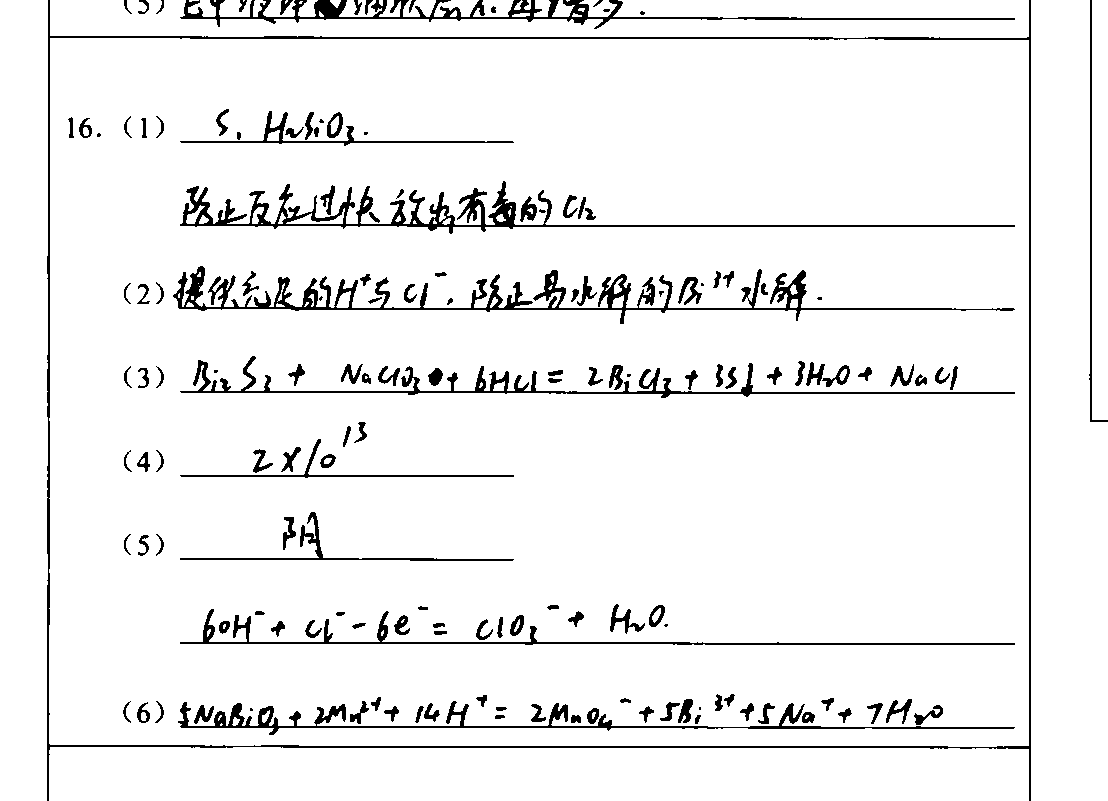 16.（1） S、H₂SiO₃.
防止反应过快 放出有毒的Cl₂
（2）提供充足的H⁺与Cl⁻，防止易水解的Bi³⁺水解.
（3） Bi₂S₃ + NaClO₃ + 6HCl = 2BiCl₃ + 3S↓ + 3H₂O + NaCl
（4） 2×10¹³
（5） 阴
6OH⁻ + Cl⁻ - 6e⁻ = ClO₃⁻ + H₂O.
（6） 5NaBiO₃ + 2Mn²⁺ + 14H⁺ = 2MnO₄⁻ + 5Bi³⁺ + 5Na⁺ + 7H₂O